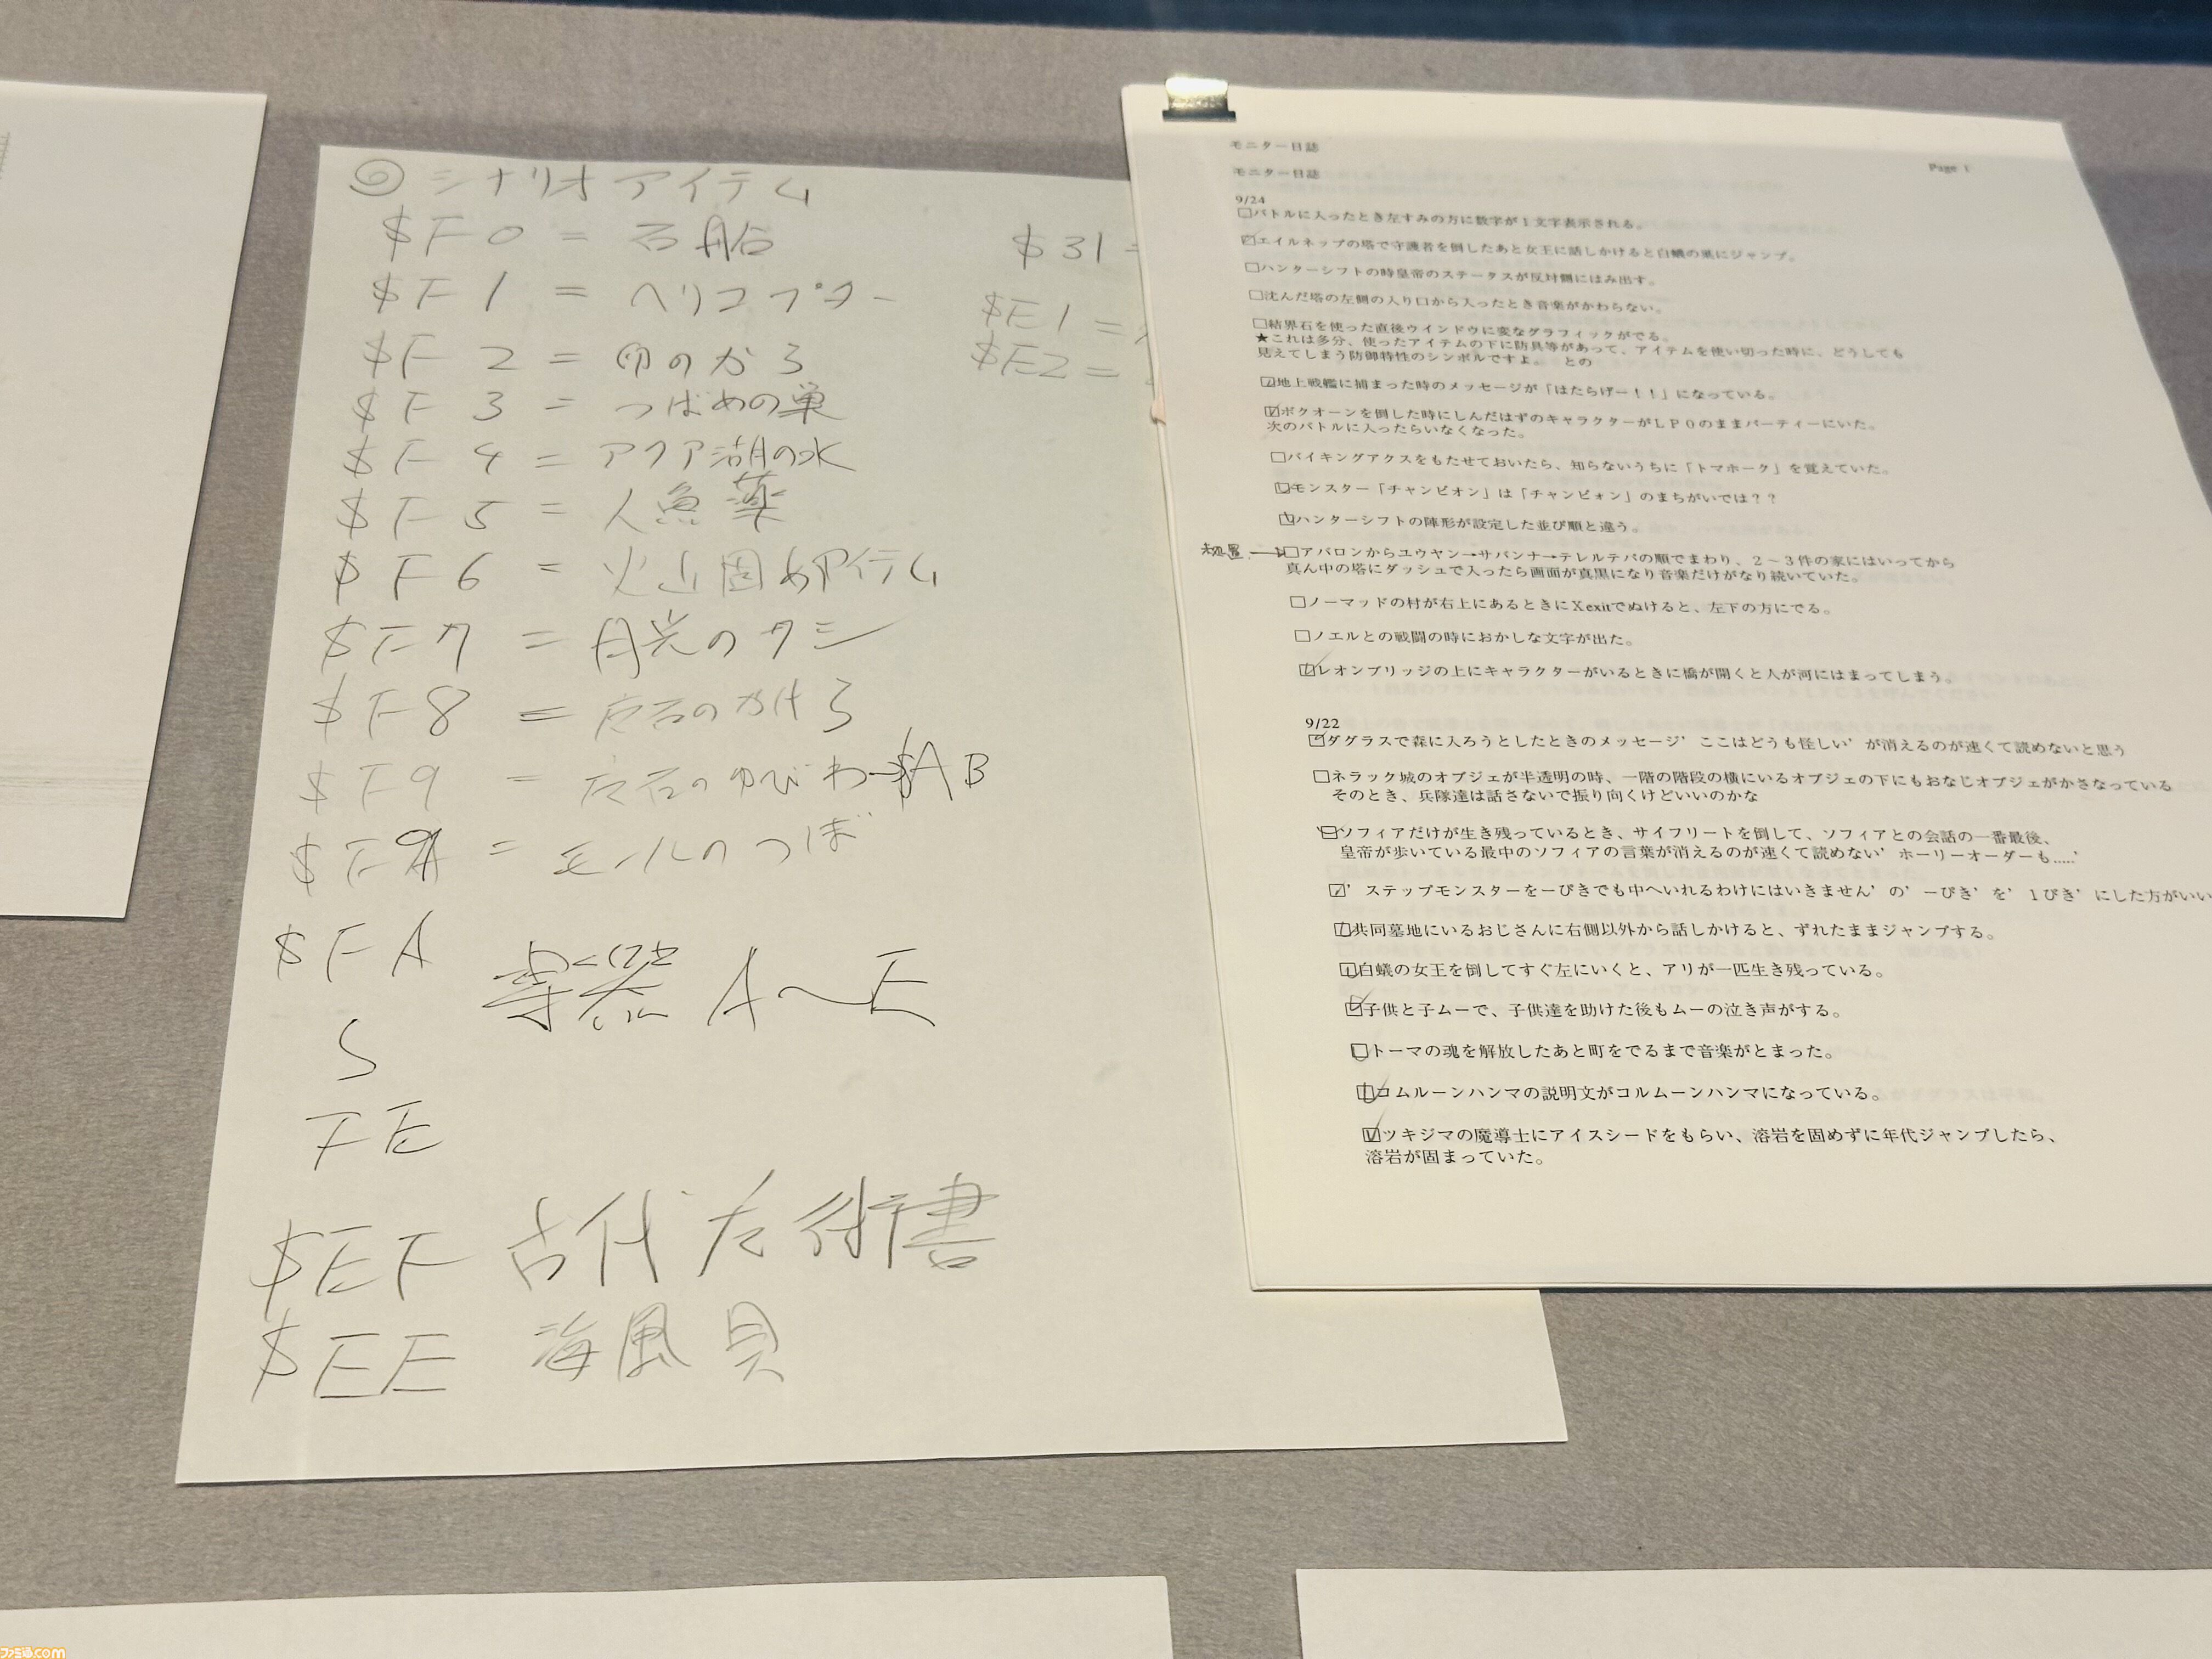 ◎シナリオアイテム
$F0 = 石船
$F1 = ヘリコプター
$F2 = 印のから
$F3 = つばめの巣
$F4 = アクア湖の水
$F5 = 人魚薬
$F6 = 火山固めアイテム
$F7 = 月光のクシ
$F8 = 石のかけら
$F9 = 石のゆびわ→$AB
= モールのつぼ
$FA 楽器 A〜E
S
FE
$EF 古代 術書
$EE 海風貝
$31 =
$E1 =
$E2 =
モニター日誌
モニター日誌
Page 1
9/24
□バトルに入ったとき左すみの方に数字が1文字表示される。
□エイルネップの塔で守護者を倒したあと女王に話しかけると白蟻の巣にジャンプ。
□ハンターシフトの時皇帝のステータスが反対側にはみ出す。
□沈んだ塔の左側の入り口から入ったとき音楽がかわらない。
□結界石を使った直後ウインドウに変なグラフィックがでる。
★これは多分、使ったアイテムの下に防具等があって、アイテムを使い切った時に、どうしても
見えてしまう防御特性のシンボルですよ。 との
□地上戦艦に捕まった時のメッセージが「はたらげー！！」になっている。
□ボクオーンを倒した時にしんだはずのキャラクターがLP0のままパーティーにいた。
次のバトルに入ったらいなくなった。
□バイキングアクスをもたせておいたら、知らないうちに「トマホーク」を覚えていた。
□モンスター「チャンピオン」は「チャンピォン」のまちがいでは？？
□ハンターシフトの陣形が設定した並び順と違う。
未処置→□アバロンからユウヤン→サバンナ→テレルテバの順でまわり、2〜3件の家にはいってから
真ん中の塔にダッシュで入ったら画面が真黒になり音楽だけがなり続いていた。
□ノーマッドの村が右上にあるときにXexitでぬけると、左下の方にでる。
□ノエルとの戦闘の時におかしな文字が出た。
□レオンブリッジの上にキャラクターがいるときに橋が開くと人が河にはまってしまう。
9/22
□ダグラスで森に入ろうとしたときのメッセージ’ここはどうも怪しい’が消えるのが速くて読めないと思う
□ネラック城のオブジェが半透明の時、一階の階段の横にいるオブジェの下にもおなじオブジェがかさなっている
そのとき、兵隊達は話さないで振り向くけどいいのかな
□ソフィアだけが生き残っているとき、サイフリートを倒して、ソフィアとの会話の一番最後、
皇帝が歩いている最中のソフィアの言葉が消えるのが速くて読めない’ホーリーオーダーも.....’
□’ステップモンスターを一ぴきでも中へいれるわけにはいきません’の’一ぴき’を’1ぴき’にした方がいい
□共同墓地にいるおじさんに右側以外から話しかけると、ずれたままジャンプする。
□白蟻の女王を倒してすぐ左にいくと、アリが一匹生き残っている。
□子供と子ムーで、子供達を助けた後もムーの泣き声がする。
□トーマの魂を解放したあと町をでるまで音楽がとまった。
□コムルーンハンマの説明文がコルムーンハンマになっている。
□ツキジマの魔導士にアイスシードをもらい、溶岩を固めずに年代ジャンプしたら、
溶岩が固まっていた。
ファミ通.com